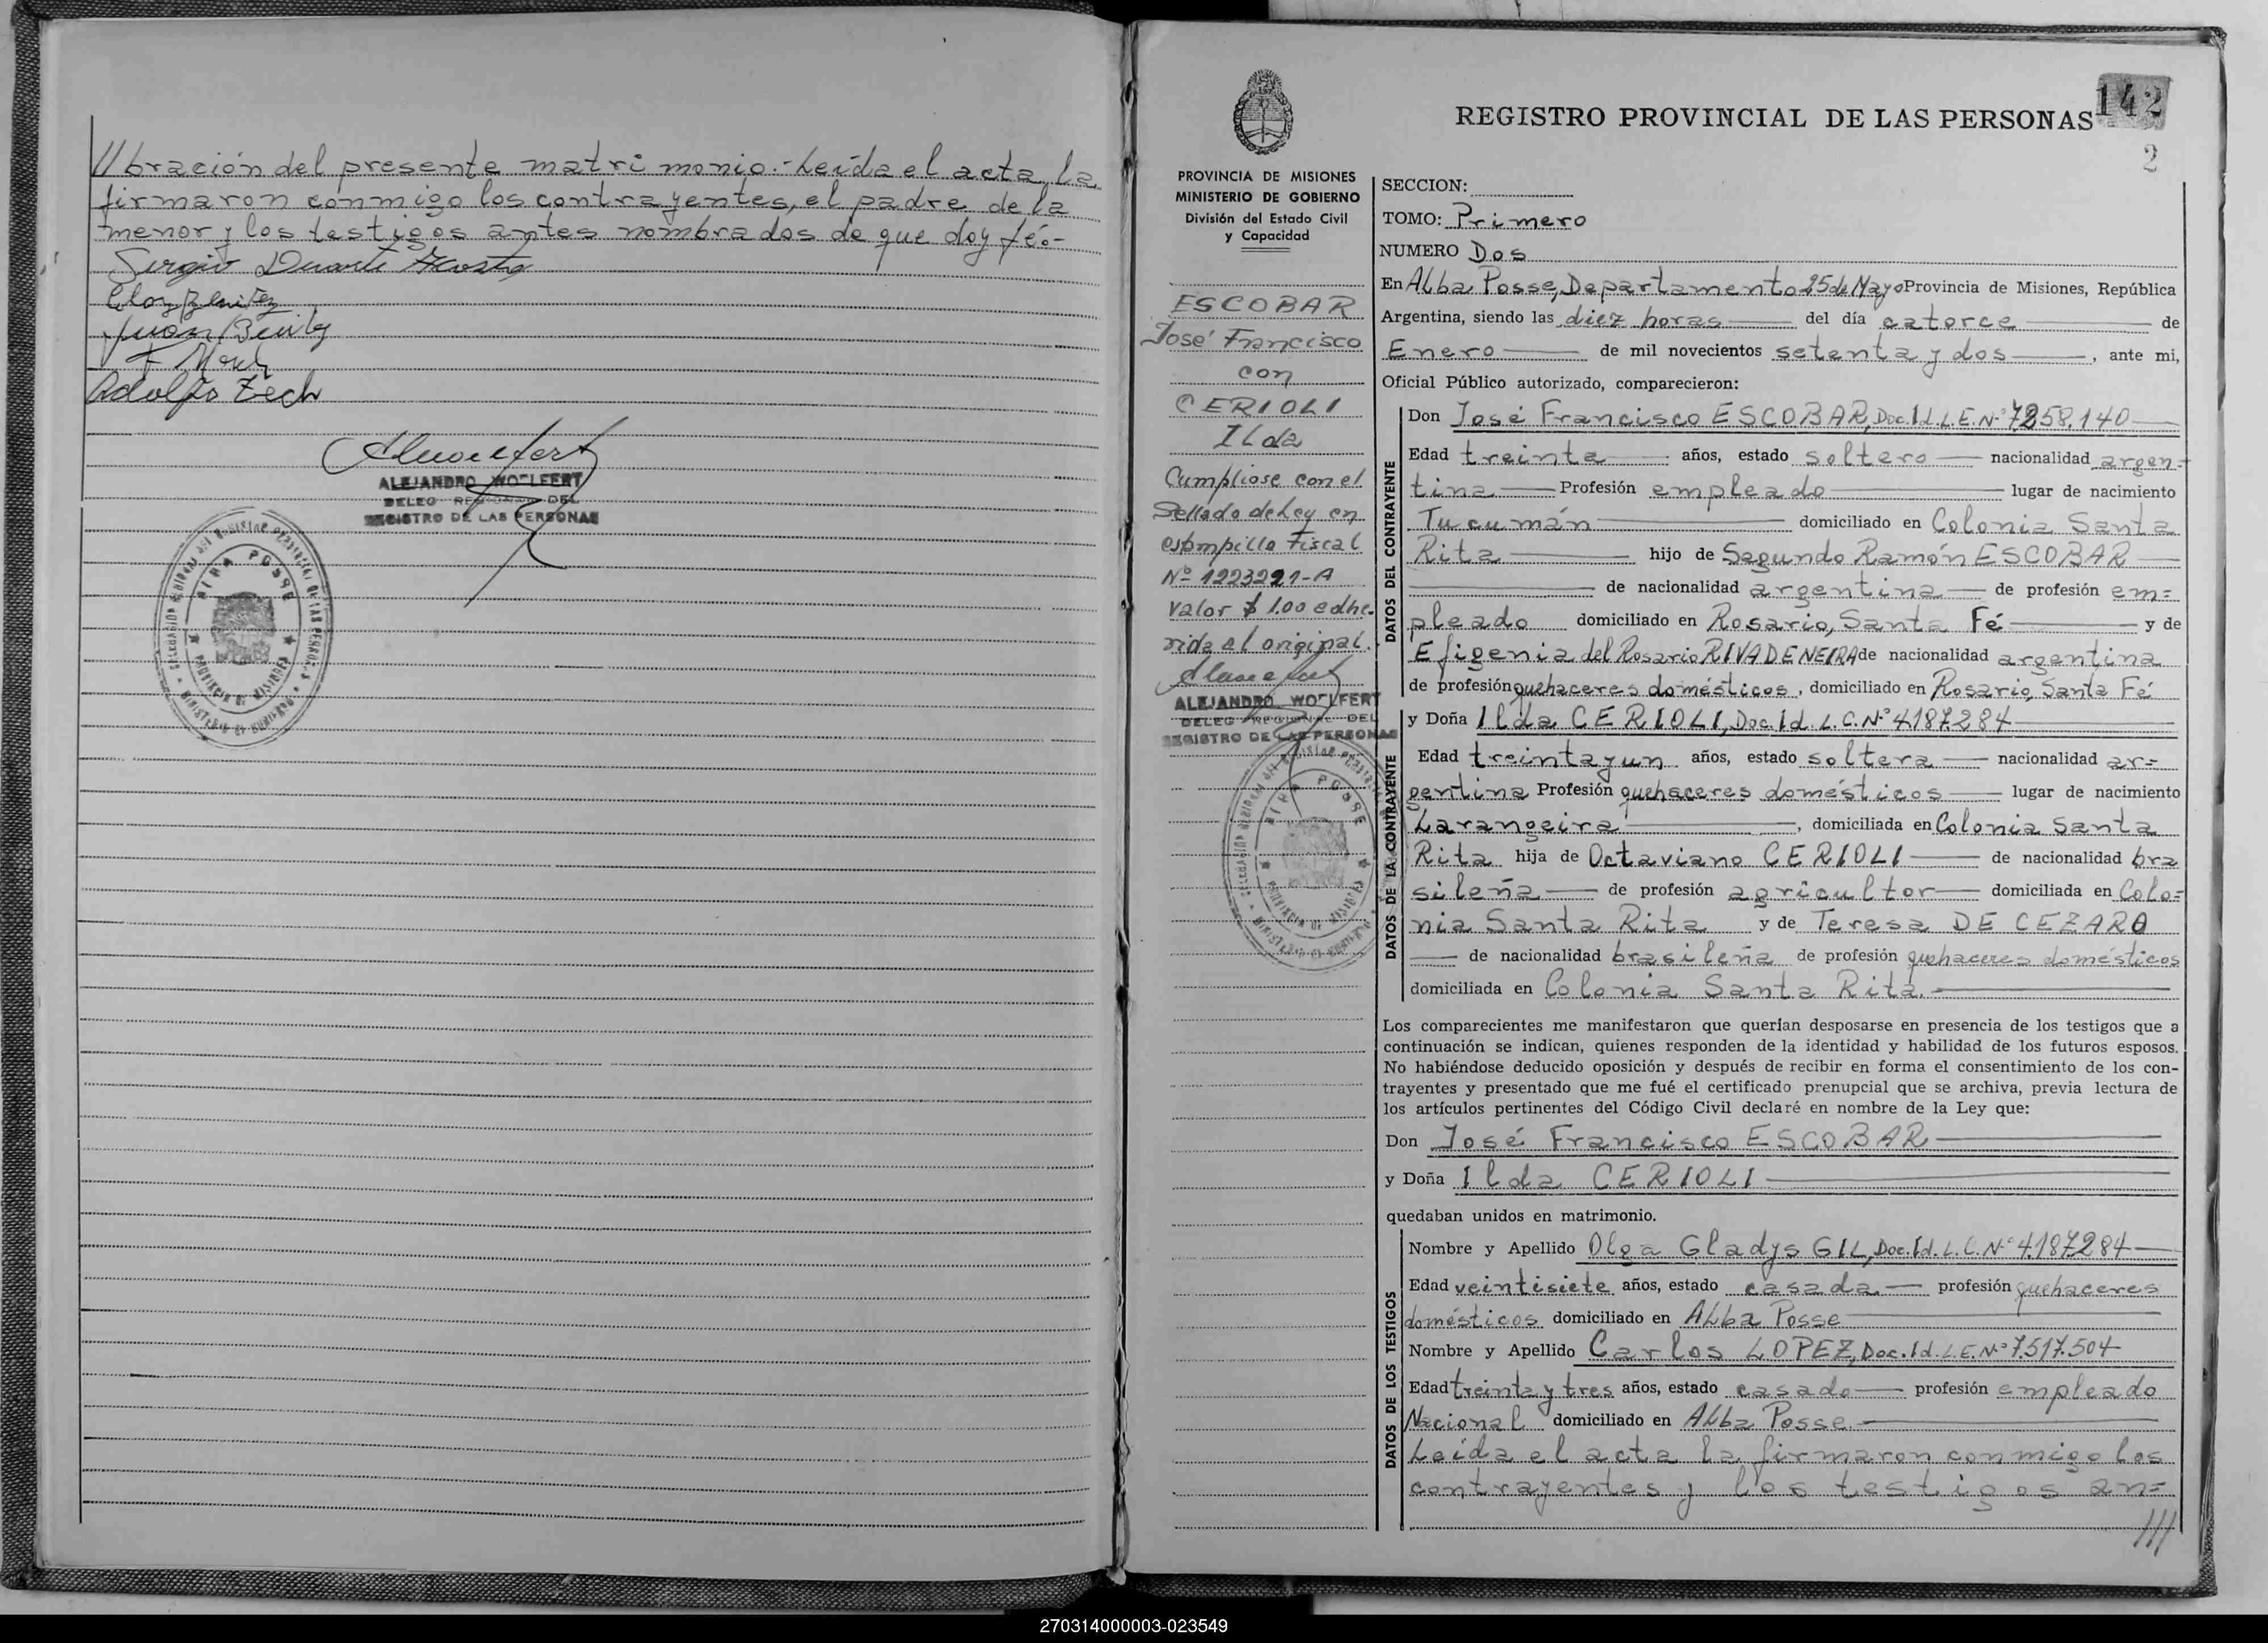 //bración del presente matrimonio.- Leída el acta, la
firmaron conmigo los contrayentes, el padre de la
menor y los testigos antes nombrados de que doy fé.-
Sergio Duarte Acosta
Eloy Benitez
Juan
Adolfo Zech
ALEJANDRO WOELFERT
DELEG. REGIONAL DEL
REGISTRO DE LAS PERSONAS
142
REGISTRO PROVINCIAL DE LAS PERSONAS
2
PROVINCIA DE MISIONES
MINISTERIO DE GOBIERNO
División del Estado Civil
y Capacidad
ESCOBAR
José Francisco
con
CERIOLI
Ilda
Cumpliose con el
Sellado de Ley en
estampilla Fiscal
Nº 1223291-A
valor $ 1.00 adhe.
rida al original.
ALEJANDRO WOELFERT
DELEG. REGIONAL DEL
REGISTRO DE LAS PERSONAS
SECCION:
TOMO: Primero
NUMERO Dos
En Alba Posse, Departamento 25 de Mayo Provincia de Misiones, República
Argentina, siendo las diez horas del día catorce de
Enero de mil novecientos setenta y dos, ante mi,
Oficial Público autorizado, comparecieron:
DATOS DEL CONTRAYENTE
Don José Francisco ESCOBAR, Doc. Id. L.E. Nº 7258.140
Edad treinta años, estado soltero nacionalidad argen-
tina Profesión empleado lugar de nacimiento
Tucumán domiciliado en Colonia Santa
Rita hijo de Segundo Ramón ESCOBAR
de nacionalidad argentina de profesión em=
pleado domiciliado en Rosario, Santa Fé y de
Efigenia del Rosario RIVADENEIRA de nacionalidad argentina
de profesión quehaceres domésticos, domiciliado en Rosario, Santa Fé
DATOS DE LA CONTRAYENTE
y Doña Ilda CERIOLI, Doc. Id. L.C. Nº 4187284
Edad treinta y un años, estado soltera nacionalidad ar=
gentina Profesión quehaceres domésticos lugar de nacimiento
Larangeira, domiciliada en Colonia Santa
Rita hija de Octaviano CERIOLI de nacionalidad bra
sileña de profesión agricultor domiciliada en Colo=
nia Santa Rita y de Teresa DE CEZARO
de nacionalidad brasileña de profesión quehaceres domésticos
domiciliada en Colonia Santa Rita.
Los comparecientes me manifestaron que querían desposarse en presencia de los testigos que a
continuación se indican, quienes responden de la identidad y habilidad de los futuros esposos.
No habiéndose deducido oposición y después de recibir en forma el consentimiento de los con-
trayentes y presentado que me fué el certificado prenupcial que se archiva, previa lectura de
los artículos pertinentes del Código Civil declaré en nombre de la Ley que:
Don José Francisco ESCOBAR
y Doña Ilda CERIOLI
quedaban unidos en matrimonio.
DATOS DE LOS TESTIGOS
Nombre y Apellido Olga Gladys GIL, Doc. Id. L.C. Nº 4.187284
Edad veintisiete años, estado casada profesión quehaceres
domésticos domiciliado en Alba Posse
Nombre y Apellido Carlos LOPEZ, Doc. Id. L.E. Nº 7.517.504
Edad treinta y tres años, estado casado profesión empleado
Nacional domiciliado en Alba Posse.
Leída el acta la firmaron conmigo los
contrayentes y los testigos an=
///
270314000003-023549